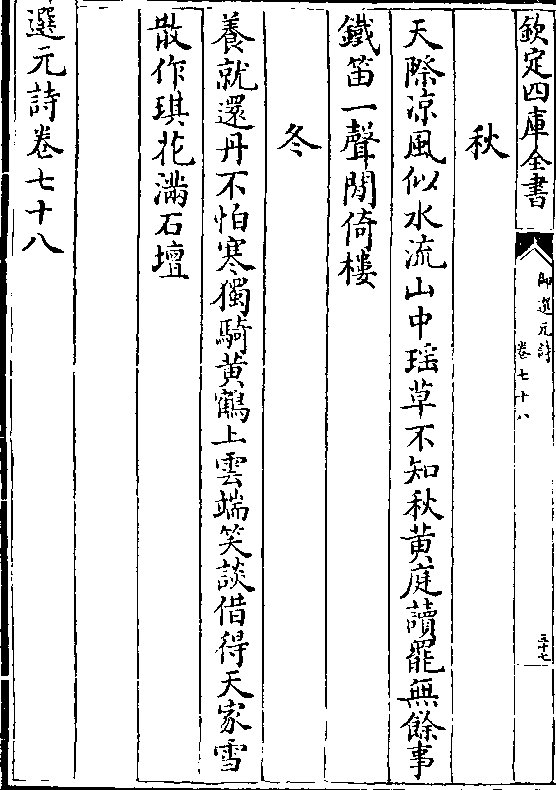 欽定四庫全書
御選元詩
卷七十八
三十七
秋
天際凉風似水流山中瑶草不知秋黄庭讀罷無餘事
鐵笛一聲閒倚樓
冬
養就還丹不怕寒獨騎黄鶴上雲端笑談借得天家雪
散作琪花滿石壇
選元詩卷七十八